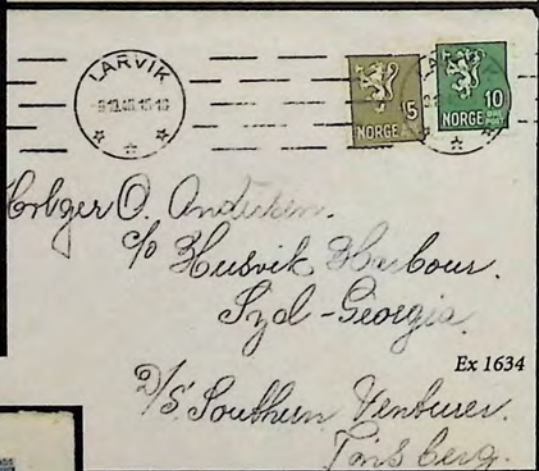 LARVIK
-9.10.46.15-16
NORGE 15
NORGE 10 ØRE POST
Holger O. Andersen.
c/o Husvik Harbour.
Syd-Georgia.
Ex 1634
D/S. Southern Venturer.
Tønsberg.